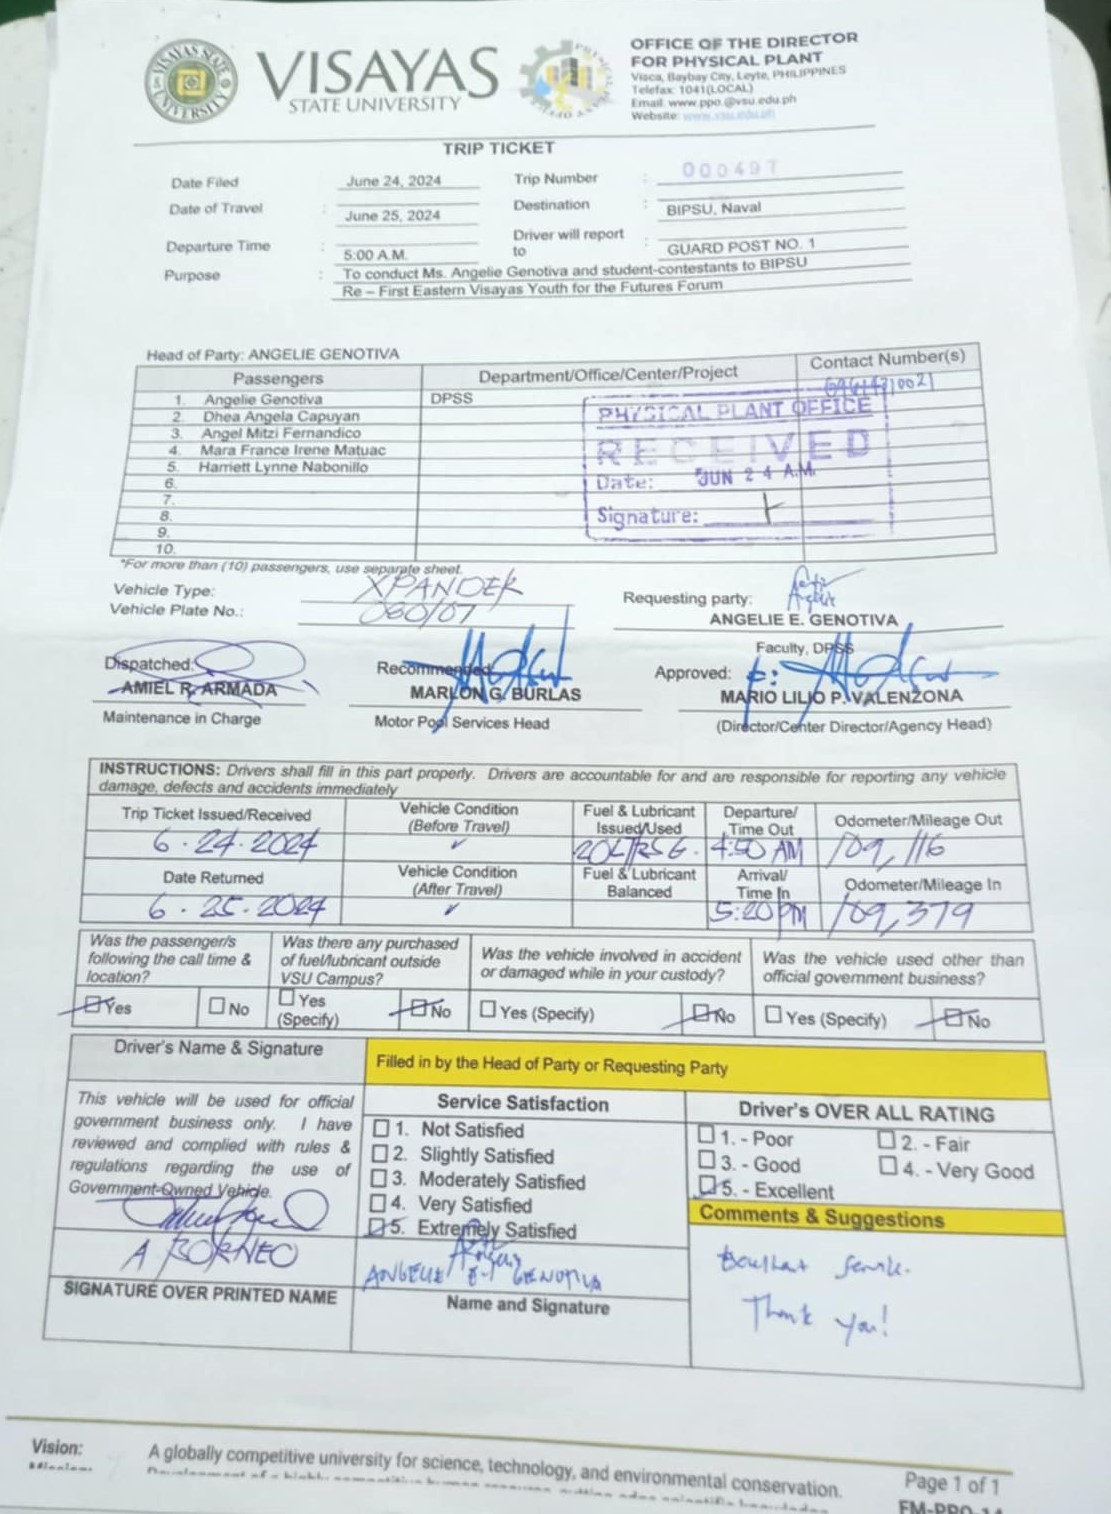 VISAYAS STATE UNIVERSITY
VISAYAS
STATE UNIVERSITY
OFFICE OF THE DIRECTOR
FOR PHYSICAL PLANT
Visca, Baybay City, Leyte, PHILIPPINES
Telefax: 1041(LOCAL)
Email: www.ppo.@vsu.edu.ph
Website: www.vsu.edu.ph
TRIP TICKET
Date Filed : June 24, 2024 Trip Number : 000497
Date of Travel : June 25, 2024 Destination : BIPSU, Naval
Departure Time : 5:00 A.M. Driver will report to : GUARD POST NO. 1
Purpose : To conduct Ms. Angelie Genotiva and student-contestants to BIPSU
Re – First Eastern Visayas Youth for the Futures Forum
Head of Party: ANGELIE GENOTIVA
Passengers Department/Office/Center/Project Contact Number(s)
1. Angelie Genotiva DPSS
2. Dhea Angela Capuyan
3. Angel Mitzi Fernandico
4. Mara France Irene Matuac
5. Harriett Lynne Nabonillo
6.
7.
8.
9.
10.
PHYSICAL PLANT OFFICE
RECEIVED
Date: JUN 24 A.M.
Signature:
*For more than (10) passengers, use separate sheet.
Vehicle Type: XPANDER
Vehicle Plate No.:
Requesting party:
ANGELIE E. GENOTIVA
Faculty, DPSS
Dispatched: Recommended: Approved:
AMIEL R. ARMADA MARLON G. BURLAS MARIO LILIO P. VALENZONA
Maintenance in Charge Motor Pool Services Head (Director/Center Director/Agency Head)
INSTRUCTIONS: Drivers shall fill in this part properly. Drivers are accountable for and are responsible for reporting any vehicle
damage, defects and accidents immediately
Trip Ticket Issued/Received Vehicle Condition (Before Travel) Fuel & Lubricant Issued/Used Departure/ Time Out Odometer/Mileage Out
6-24-2024 ✓ 4:50 AM 109,116
Date Returned Vehicle Condition (After Travel) Fuel & Lubricant Balanced Arrival/ Time In Odometer/Mileage In
6-25-2024 ✓ 5:20 PM 109,379
Was the passenger/s following the call time & location? Was there any purchased of fuel/lubricant outside VSU Campus? Was the vehicle involved in accident or damaged while in your custody? Was the vehicle used other than official government business?
Yes No Yes (Specify) No Yes (Specify) No Yes (Specify) No
Driver's Name & Signature
Filled in by the Head of Party or Requesting Party
This vehicle will be used for official
government business only. I have
reviewed and complied with rules &
regulations regarding the use of
Government-Owned Vehicle.
A BORNEO
SIGNATURE OVER PRINTED NAME
Service Satisfaction
1. Not Satisfied
2. Slightly Satisfied
3. Moderately Satisfied
4. Very Satisfied
5. Extremely Satisfied
ANGELIE E. GENOTIVA
Name and Signature
Driver's OVER ALL RATING
1. - Poor 2. - Fair
3. - Good 4. - Very Good
5. - Excellent
Comments & Suggestions
Thank you!
Vision: A globally competitive university for science, technology, and environmental conservation.
Page 1 of 1